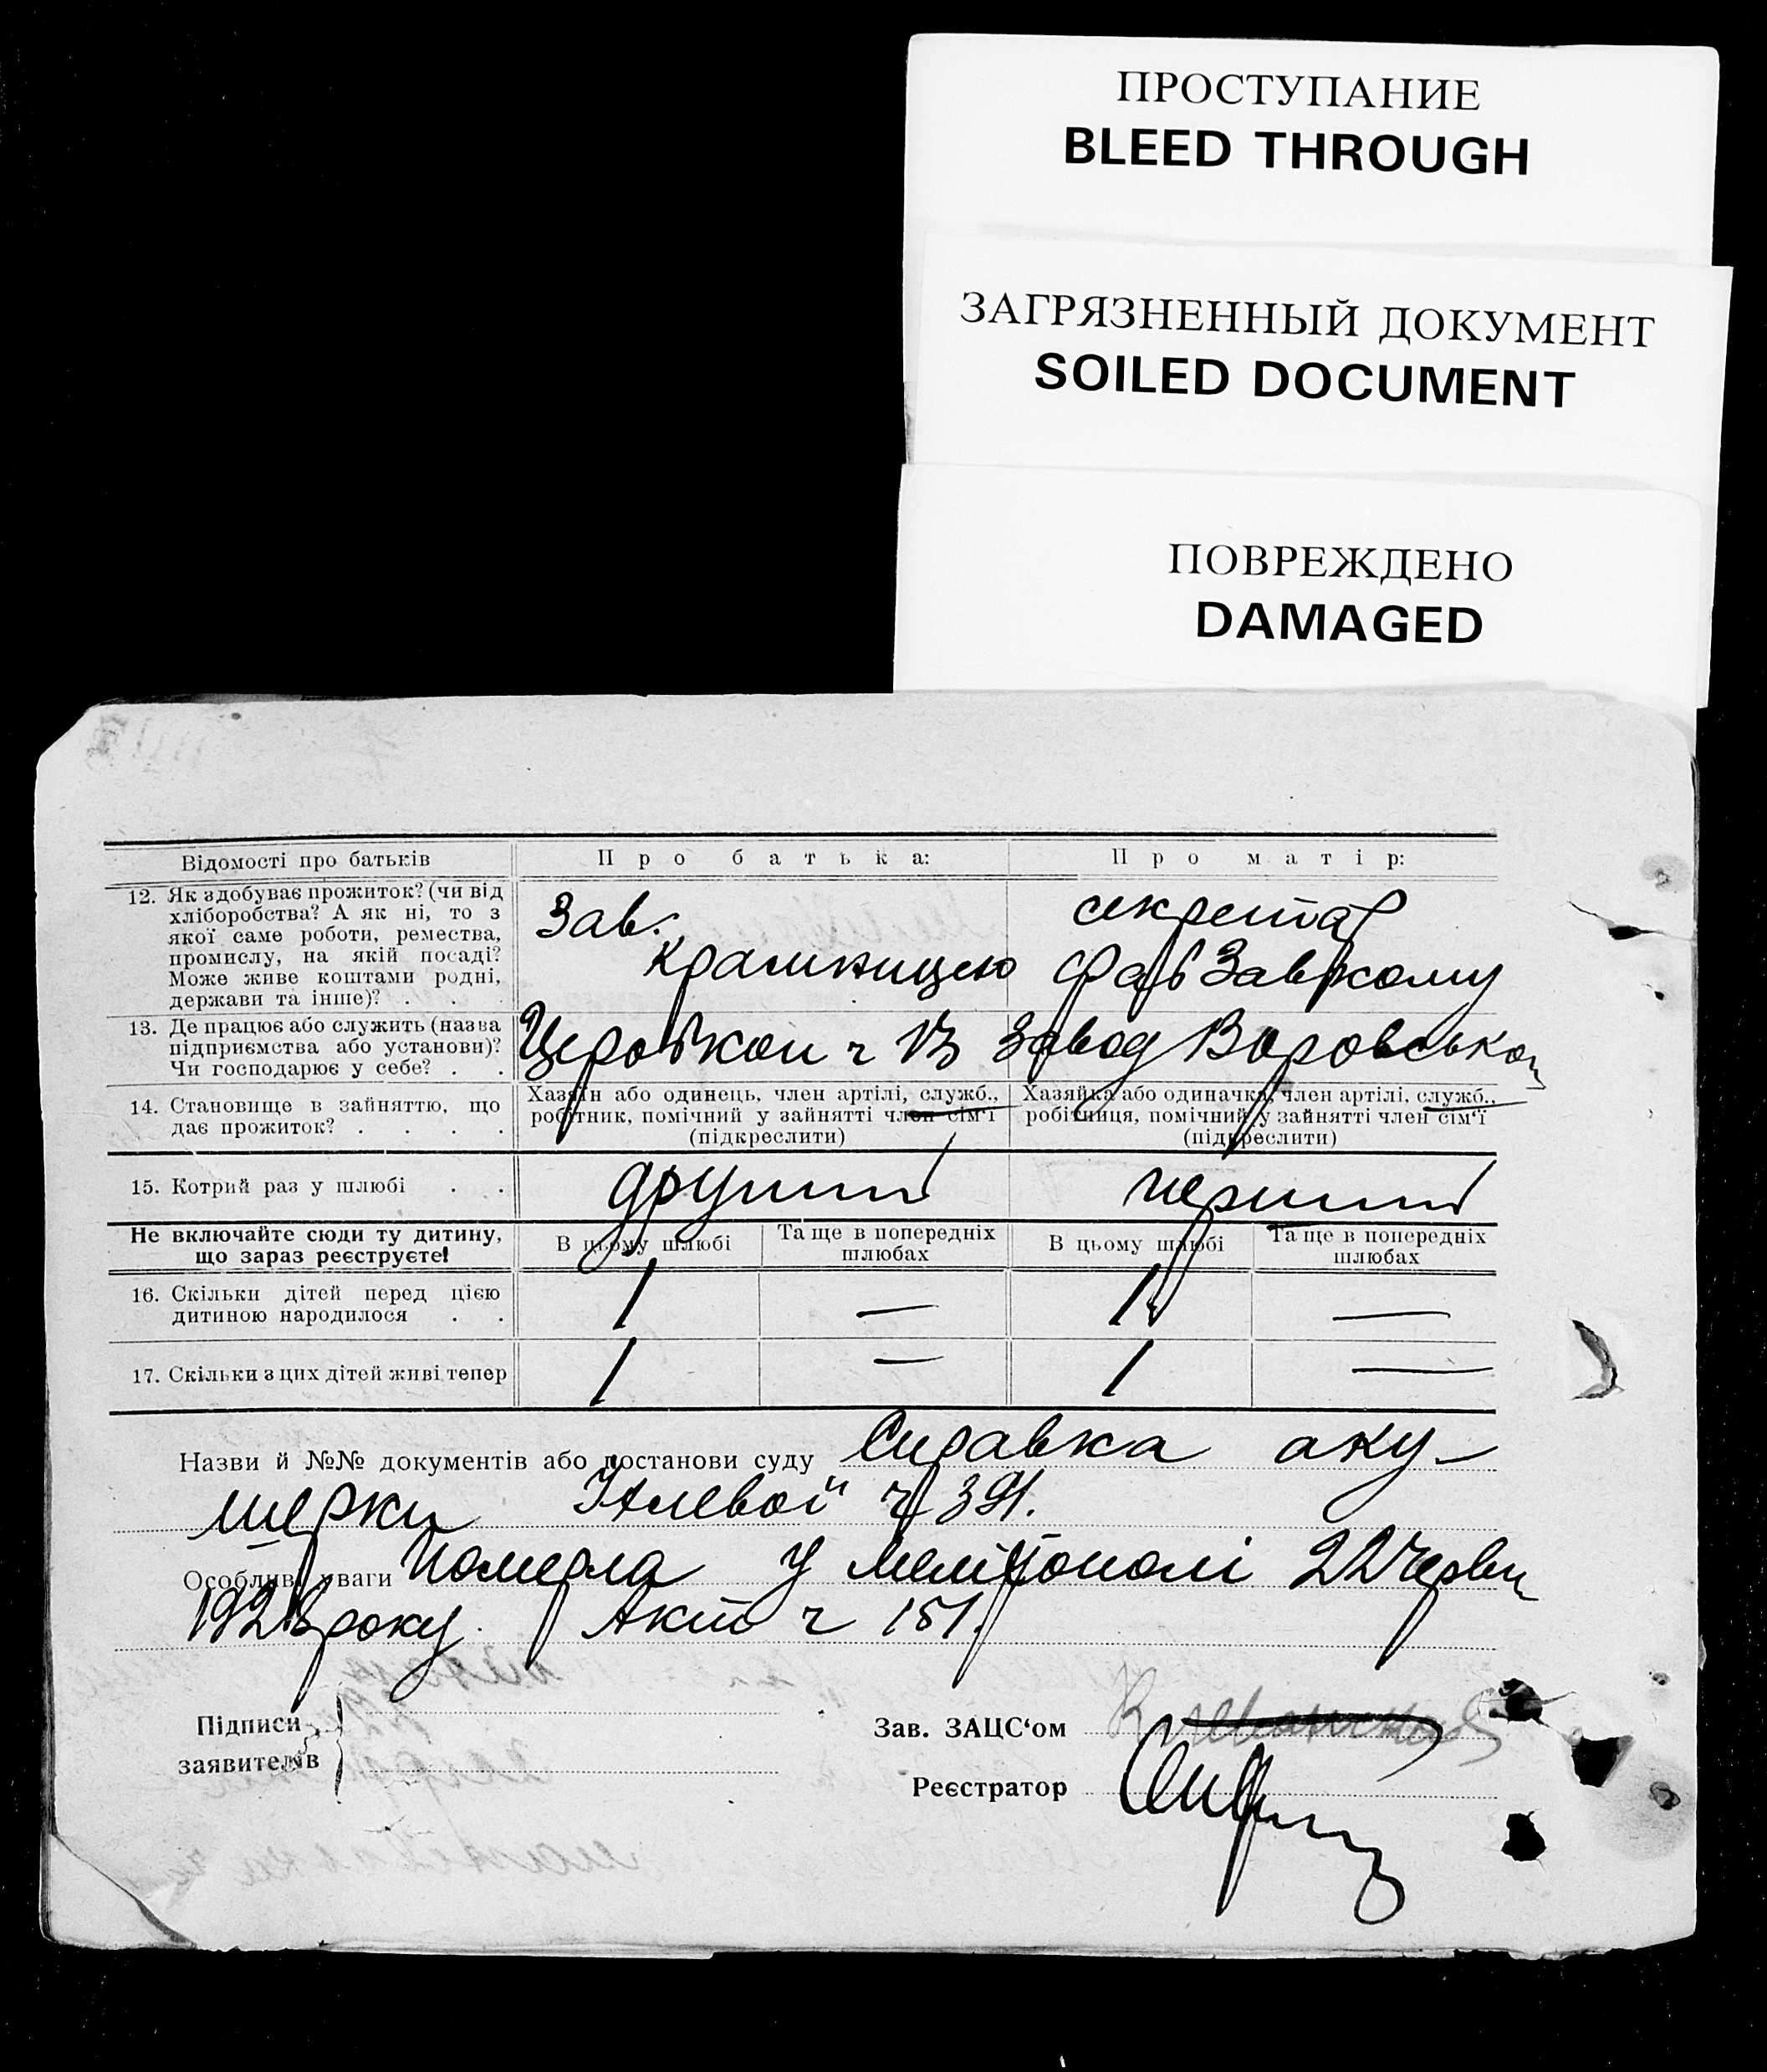 ПРОСТУПАНИЕ
BLEED THROUGH
ЗАГРЯЗНЕННЫЙ ДОКУМЕНТ
SOILED DOCUMENT
ПОВРЕЖДЕНО
DAMAGED
Відомості про батьків
Про батька:
Про матір:
12. Як здобуває прожиток? (чи від
хліборобства? А як ні, то з
якої саме роботи, ремества,
промислу, на якій посаді?
Може живе коштами родні,
держави та інше)? . . .
Зав.
крамницею
секретар
Завкому
13. Де працює або служить (назва
підприємства або установи)?
Чи господарює у себе? . .
Церобкоп ч 13
Завод Воровського
14. Становище в зайняттю, що
дає прожиток? . . . .
Хазяїн або одинець, член артілі, служб.,
робітник, помічний у зайнятті член сім'ї
(підкреслити)
Хазяйка або одиначка, член артілі, служб.,
робітниця, помічний у зайнятті член сім'ї
(підкреслити)
15. Котрий раз у шлюбі . .
другий
перший
Не включайте сюди ту дитину,
що зараз реєструєте!
В цьому шлюбі
Та ще в попередніх
шлюбах
В цьому шлюбі
Та ще в попередніх
шлюбах
16. Скільки дітей перед цією
дитиною народилося . .
1 — 1 —
17. Скільки з цих дітей живі тепер
1 — 1 —
Назви й №№ документів або постанови суду Справка аку-
шерки ч 391.
Особливі уваги Померла у Мелітополі 22 червн
1928 року. Акт ч 151.
Підписи
заявителів
Зав. ЗАЦС'ом
Реєстратор